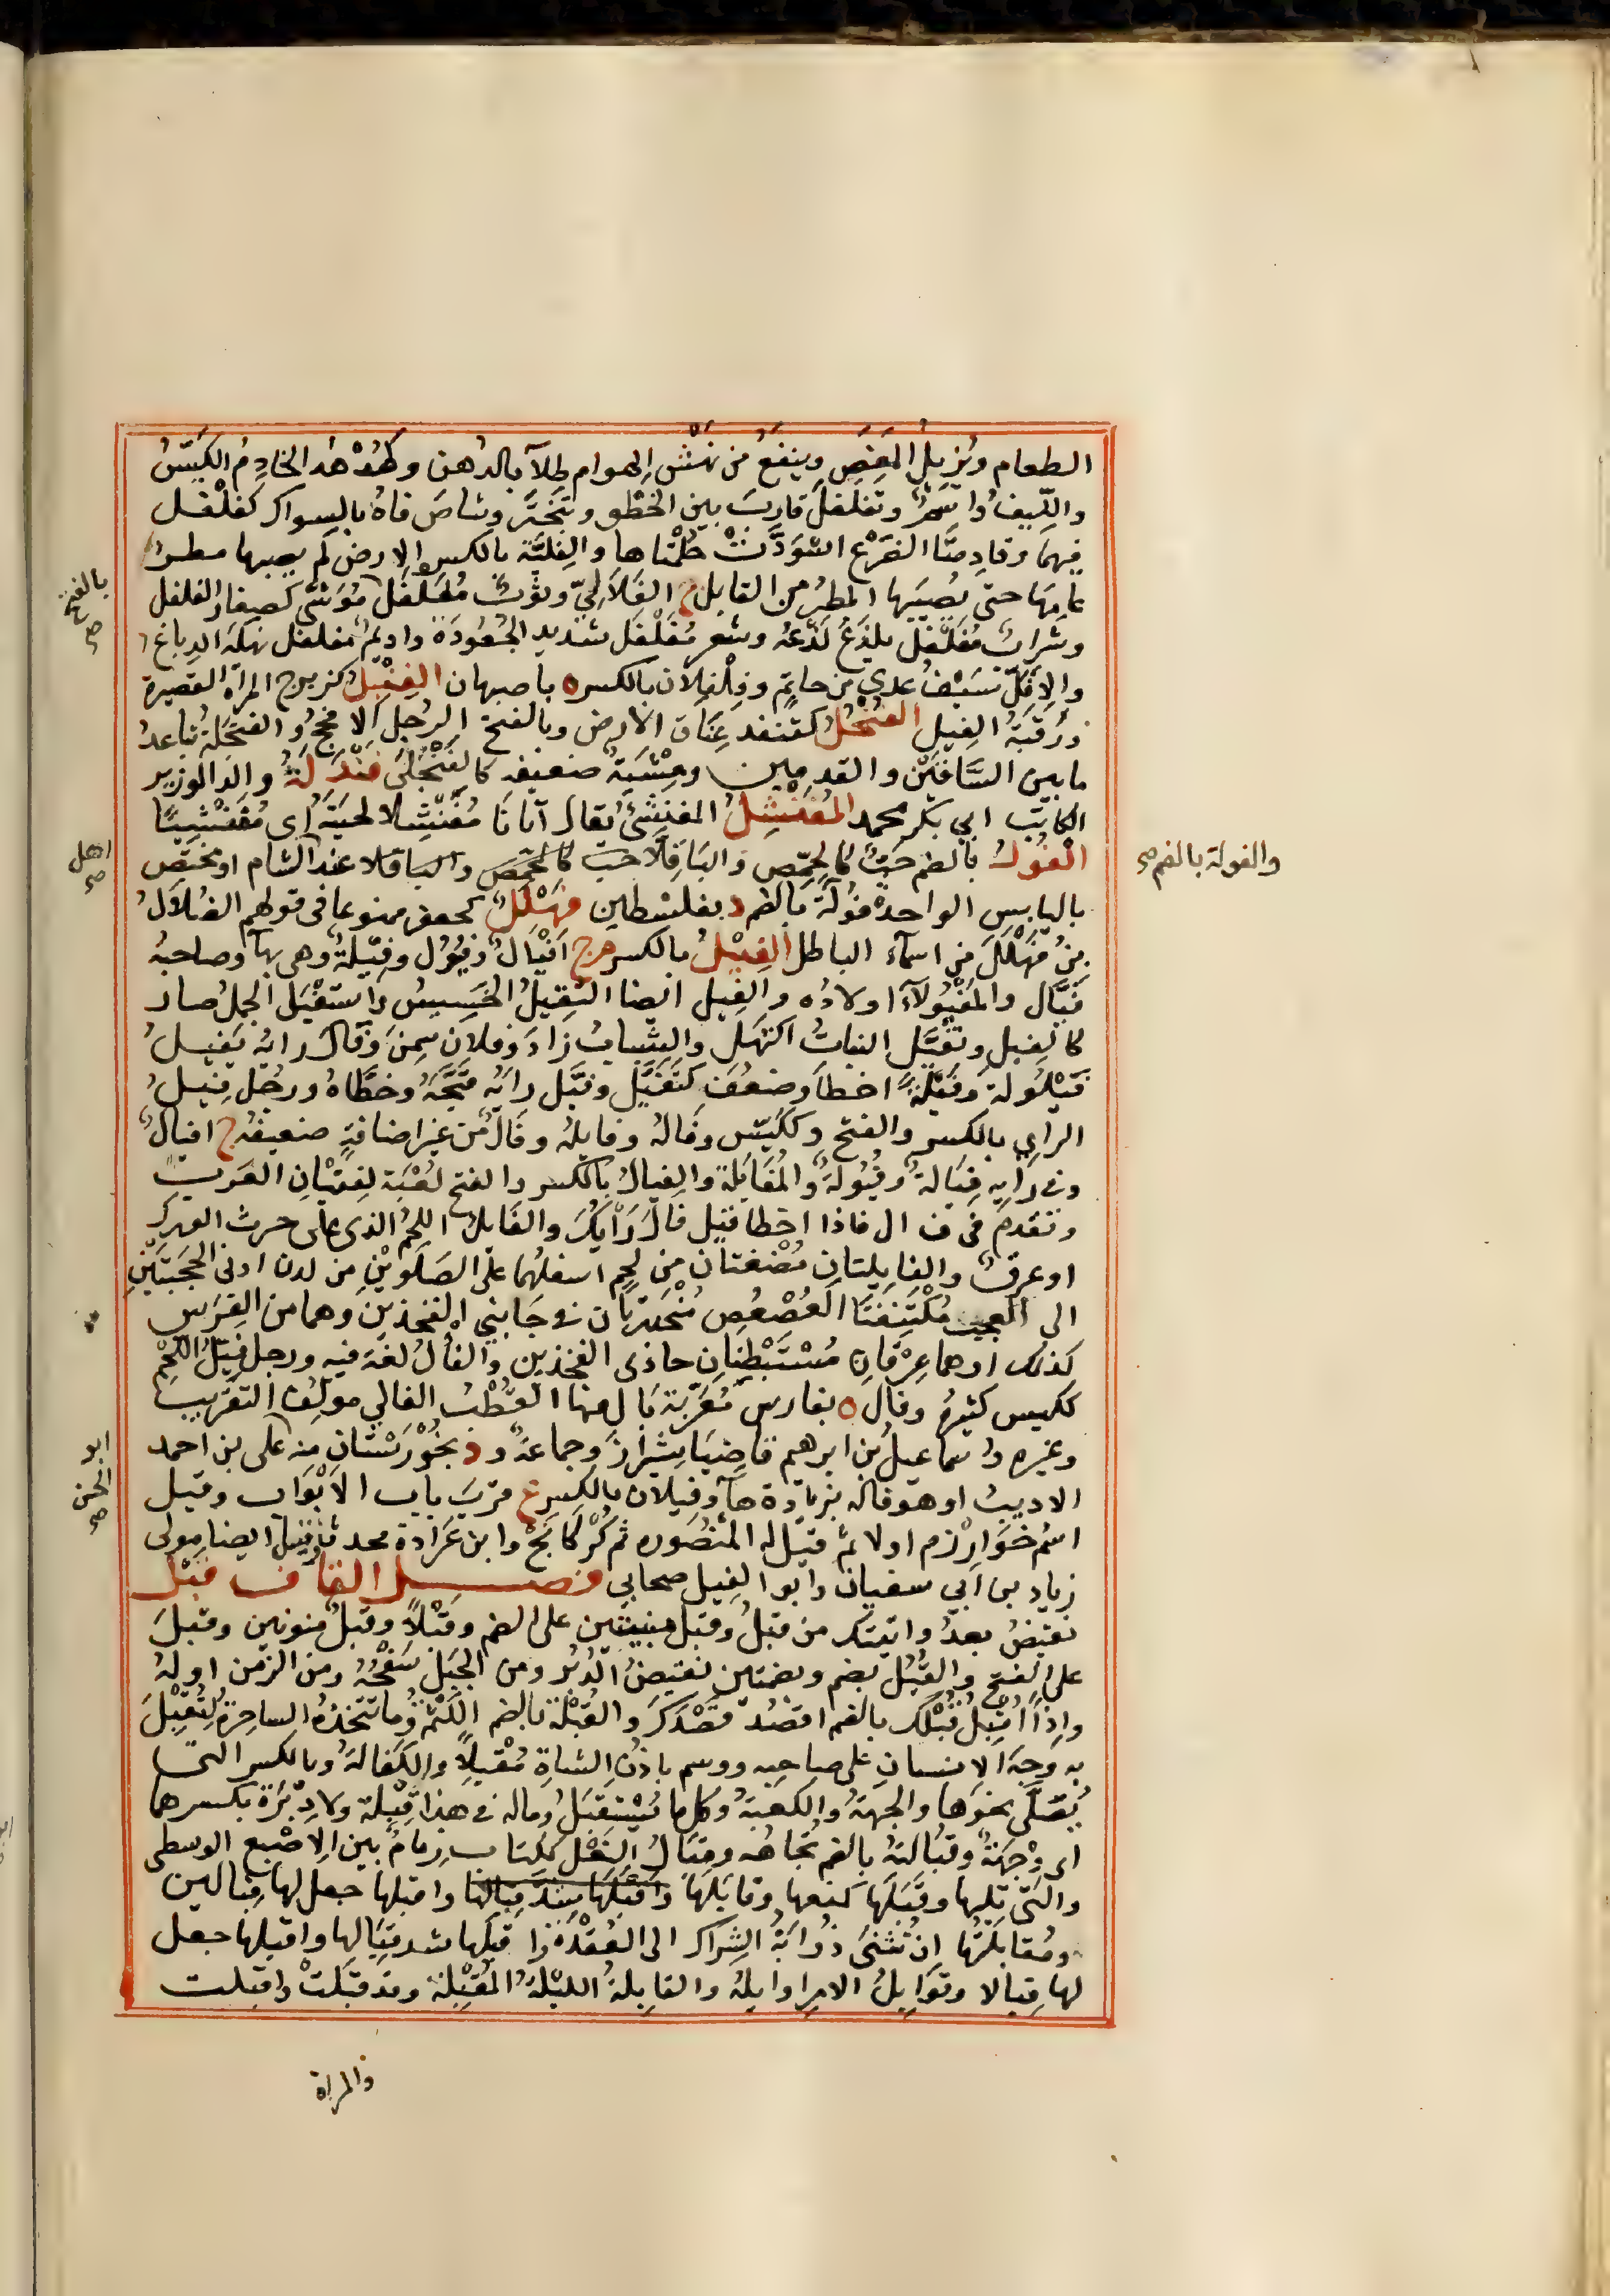 الطعام ويُزيل المَغَصَ وينفعُ من نَهْش الهوام طِلآً بالدُهن وكهُدْهُد الخادِمُ الكَيّسُ
والليفُ واسمٌ وتفلفلَ قاربَ بين الخطو وتبختَر وشاصَ فاهُ بالسواك كفلفل
فيهما وقادمتا الضَرْع اسْوَدَّتْ حَلَمَتاها والفِليَّة بالكسر الارض لم يصبها مطر
عامها حتى يُصيبَها المطرُ من القابل ج الفَلَالِيّ وثوبٌ مُفَلفَلٌ مُوَشًّى كصِغار الفلفل
وشرابٌ مُفَلفَل يلذَعُ لَذْعَهُ وشعر مُفَلفَل شديد الجُعُودَة واديمٌ مفلفل نهكه الدباغ
والافَلّ سَيْفُ عدي بن حاتم وفِلْفِلان بالكسر ه باصبهان الفِنْئِلُ كزبرج المرأة القصيرة
ورُقبَةُ الفيل الفُنْجُلُ كقنفذ عَنَاق الارض وبالفتح الرجل الافحَجُ والفنجلة تباعدُ
ما بين السَّاقَيْن والقدمين ومِشْيَةٌ ضعيفة كالفَنْجَلَى فَنْدَلَةُ والد الوزير
الكاتب ابي بكر محمد المُفَنْشِلُ المفنشئ يقال آتانا مُفَنْشِلا لحيته اى مُفَنْشِيًا
الفُولُ بالضم حَبٌّ كالحِمّص والبَاقِلّا حب كالحمص والباقلا عند الشام او مختص
باليابس الواحدة فُولَةٌ بالضم د بفلسْطين فَهْلَلُ كجعفر ممنوعا فى قولهم الضُلَالُ
بنُ فَهْلَلَ من اسمآء الباطل الفِيْلُ بالكسر م ج اَفْيَالٌ وفُيُول وفِيَلَةٌ وهى بهآ وصاحبهُ
فَيَّال والمَفْيُولآءَ اولاده والفيل ايضا الثقيلُ الخَسِيسُ واسْتَفْيَلَ الجملُ صار
كالفيل وتفيَّل النباتُ اكتهل والشباب زادَ وفلان سمِنَ وفال رايُه يَفيلُ
فَيْلُولة وفَيْلَةً اخطأ وضعُف كتَفَيَّل وفيَّل رايَه قبَّحهُ وخطَّأه ورجُل فيلُ
الراي بالكسر والفتح وككَيّس وفالُهُ وفايلُه وفَالٌ من غير اضافةٍ ضعيفُه ج افيالٌ
وفى رايه فِيَالةٌ وفُيُولَةٌ والمُفَايَلَة والفيالُ بالكسر والفتح لُعْبَة لفتْيان العَرَب
وتقدمَ فى ف ال فاذا اخطا قيل فالَ رَأيُكَ والفَايلُ اللحمُ الذى على خرب الورك
او عرقٌ والفايلتان مُضْغتان من لحمٍ اسفلهما على الصَلَوَيْن من لدن ادنى الحَجَبَتَيْن
الى العجب مُكْتَنِفتا العُصْعُص مُنْحَدرتان فى جَانِبَي الفخذين وهما من الفرس
كذلك او هما عِرْقان مُسْتَبْطِنان حاذى الفخذين والفالُ لغة فيه ورجل فيّلُ اللحم
ككيس كثيرُه وفال ه بفارس مُعَرَّبَة بال منها القُطْب الفالي مولِف التقريب
وغيره واسماعيل بن ابرهيم قاضيا بشيراز وجماعة ود بخُوزستان منه على بن احمد
الاديب او هو فاله بزيادة هآ وفيلان بالكسر ع قرب باب الابْوَاب وقيل
اسم خوارزم اولا ثم قيل له المنصورة ثم كُرْكانَج وابن عَرَادة محدث وفيل ايضا مولى
زياد بن ابي سفيان وابو الفيل صحابي فصـــل القاف قَبْل
نقيضُ بعد واتيتك من قبلُ وقبل مبنيتين على الضم وقَبْلًا وقبلٌ منونين وقبلَ
على الفتح والقُبُل بضم وبضمتين نقيضُ الدُبُر ومن الجبل سَفْحُهُ ومن الزمن اولهُ
واذا اُقبِلُ قُبْلَك بالضم اقصُد قَصْدَك والقُبْلة بالضم اللَثْمَة وما تتخذُه الساحرَة لتُقْبِلَ
به وجهَ الانسان على صاحبه ووسم باذن الشاة مُقْبِلًا والكفالةُ وبالكسر التى
يُصَلَّى نحوَها والجهةُ والكعبة وكل ما يُسْتقبَلُ وماله فى هذا قِبْلة ولا دِبْرَة بكسرهما
اى وِجهَةٌ وقُبَالتهُ بالضم تُجاهُه وقِبَالُ النَعْل ككتاب زِمامٌ بين الاصْبع الوسطى
والتى تليها وقَبَلَها كمنعها وقابَلَها واَقبَلَها شدَّ قِبالها واقبلها جعل لها قِبالين
ومُقابَلتُها ان تُثنى ذُؤابَةُ الشِراك الى العُقْدَة او قَبَلها شد قِبَالها واقبلها جعل
لها قِبالا وقَوَابِلُ الامر اوايلُهُ والقابلةُ الليْلَةُ المُقْبِلَة وقد قَبَلَتْ واقبلت
والمراة
بالفتح صح
اهل صح
والفولة بالضم صح
ابو الحسن صح